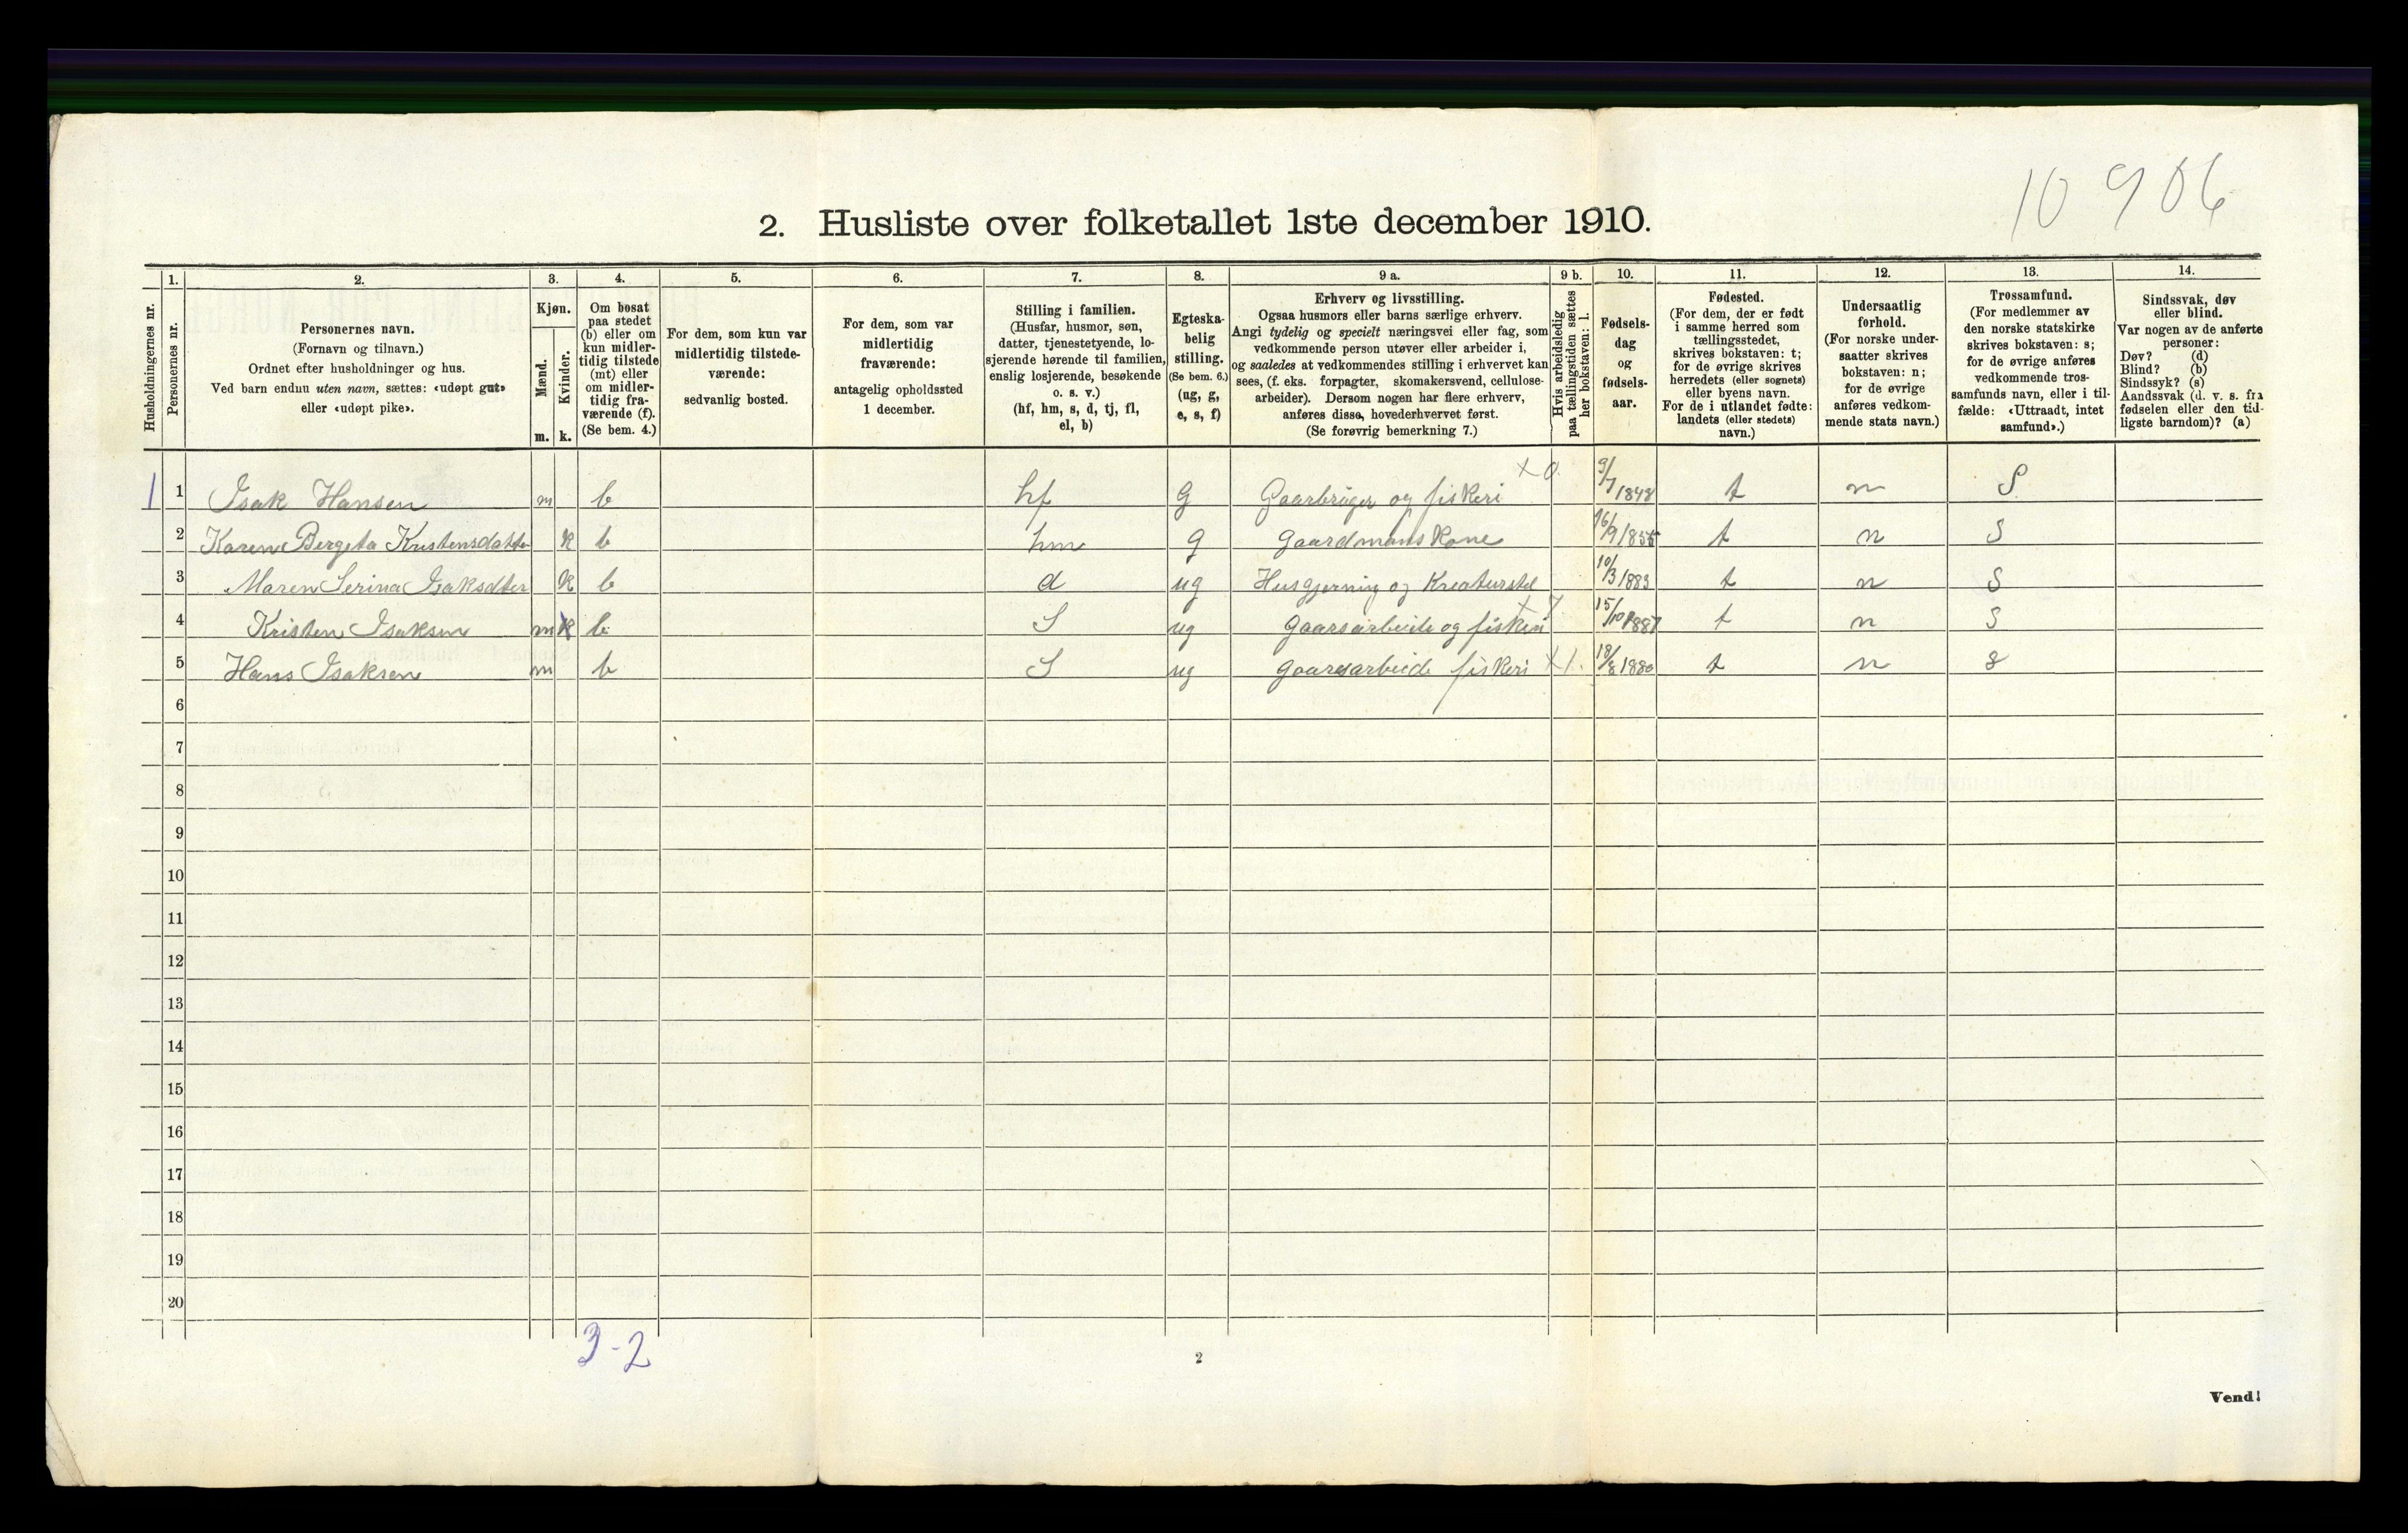 10 906
2. Husliste over folketallet 1ste december 1910.
Husholdningernes nr.
1.
Personernes nr.
2.
Personernes navn.
(Fornavn og tilnavn.)
Ordnet efter husholdninger og hus.
Ved barn endnu uten navn, sættes: «udøpt gut»
eller «udøpt pike».
3.
Kjøn.
Mænd.
m.
Kvinder.
k.
4.
Om bosat
paa stedet
(b) eller om
kun midler-
tidig tilstede
(mt) eller
om midler-
tidig fra-
værende (f).
(Se bem. 4.)
5.
For dem, som kun var
midlertidig tilstede-
værende:
sedvanlig bosted.
6.
For dem, som var
midlertidig
fraværende:
antagelig opholdssted
1 december.
7.
Stilling i familien.
(Husfar, husmor, søn,
datter, tjenestetyende, lo-
sjerende hørende til familien,
enslig losjerende, besøkende
o. s. v.)
(hf, hm, s, d, tj, fl,
el, b)
8.
Egteska-
belig
stilling.
(Se bem. 6.)
(ug, g,
e, s, f)
9 a.
Erhverv og livsstilling.
Ogsaa husmors eller barns særlige erhverv.
Angi tydelig og specielt næringsvei eller fag, som
vedkommende person utøver eller arbeider i,
og saaledes at vedkommendes stilling i erhvervet kan
sees, (f. eks. forpagter, skomakersvend, cellulose-
arbeider). Dersom nogen har flere erhverv,
anføres disse, hovederhvervet først.
(Se forøvrig bemerkning 7.)
9 b.
Hvis arbeidsledig
paa tællingstiden sættes
her bokstaven: l.
10.
Fødsels-
dag
og
fødsels-
aar.
11.
Fødested.
(For dem, der er født
i samme herred som
tællingsstedet,
skrives bokstaven: t;
for de øvrige skrives
herredets (eller sognets)
eller byens navn.
For de i utlandet fødte:
landets (eller stedets)
navn.)
12.
Undersaatlig
forhold.
(For norske under-
saatter skrives
bokstaven: n;
for de øvrige
anføres vedkom-
mende stats navn.)
13.
Trossamfund.
(For medlemmer av
den norske statskirke
skrives bokstaven: s;
for de øvrige anføres
vedkommende tros-
samfunds navn, eller i til-
fælde: «Uttraadt, intet
samfund».)
14.
Sindssvak, døv
eller blind.
Var nogen av de anførte
personer:
Døv? (d)
Blind? (b)
Sindssyk? (s)
Aandssvak (d. v. s. fra
fødselen eller den tid-
ligste barndom)? (a)
1 1 Isak Hansen m b hf g Gaarbruger og fiskeri x 0 9/7 1848 t n S
2 Karen Bergeta Kristensdatter k b hm g gaardmans Kone 16/9 185 t n S
3 Maren Serina Isaksdter k b d ug Husgjerning og Kreaturstel 10/3 1883 t n S
4 Kristen Isaksen m k b S ug gaarsarbeide og fiskeri x 7 15/10 1887 t n S
5 Hans Isaksen m b S ug gaarsarbeide fiskeri x 1. 18/8 1880 t n s
6
7
8
9
10
11
12
13
14
15
16
17
18
19
20
3-2
2
Vend!